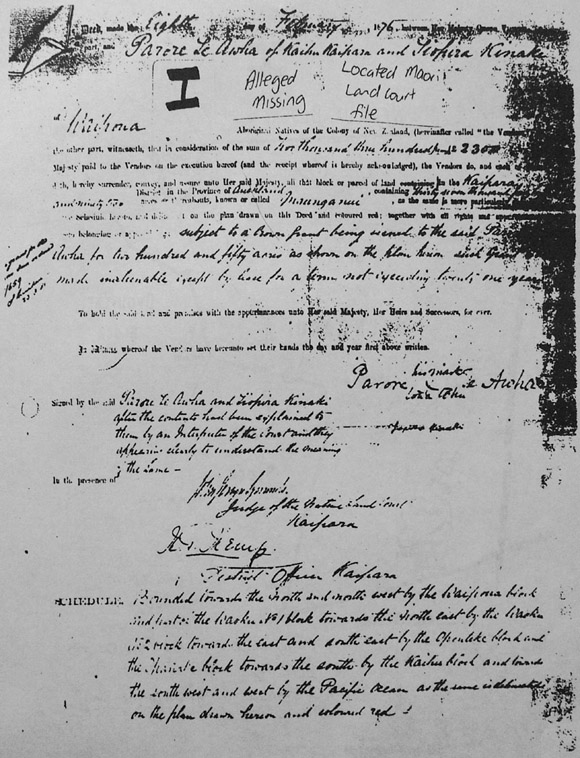 Deed, made the Eighth day of February 1876 between Her Majesty Queen
part, and Parore Te Awha of Kaihu Kaipara and Tiopira Kinaki
I
Alleged Missing
Located Maori Land Court file
of Waipoua
Aboriginal Natives of the Colony of New Zealand, (hereinafter called "the Vendors
the other part, witnesseth, that in consideration of the sum of Two thousand three hundred pounds £2300
Majesty paid to the Vendors on the execution hereof (and the receipt whereof is hereby acknowledged), the Vendors do, and each of
doth, hereby surrender, convey, and assure unto Her said Majesty, all that block or parcel of land containing in the Kaipara
District in the Province of Auckland, containing Thirty seven thousand
and ninety two acres or thereabouts, known or called Maunganui, as the same is more particularly
the Schedule hereto, and on the plan drawn on this Deed and coloured red; together with all rights and appurtenances
belonging or subject to a Crown grant being issued to the said Parore
Awha for two hundred and fifty acres as shown on the plan hereon such grant
made inalienable except by lease for a term not exceeding twenty one years
To hold the said land and premises with the appurtenances unto Her said Majesty, Her Heirs and Successors, for ever.
In witness whereof the Vendors have hereunto set their hands the day and year first above written.
Parore his mark Te Awha
Signed by the said Parore Te Awha and Tiopira Kinaki
after the contents had been explained to
them by an Interpreter of the Court and they
appearing clearly to understand the meaning
of the same —
In the presence of
Judge of the Native Land Court
Kaipara
H. T. Kemp
District Officer Kaipara
SCHEDULE. Bounded towards the North and north west by the Waipoua block
and part of the Waoku No 1 block towards the North east by the Waoku
No 2 block towards the east and south east by the Opouteke block and
the block towards the south by the Kaihu block and towards
the south west and west by the Pacific Ocean as the same is delineated
on the plan drawn hereon and coloured red